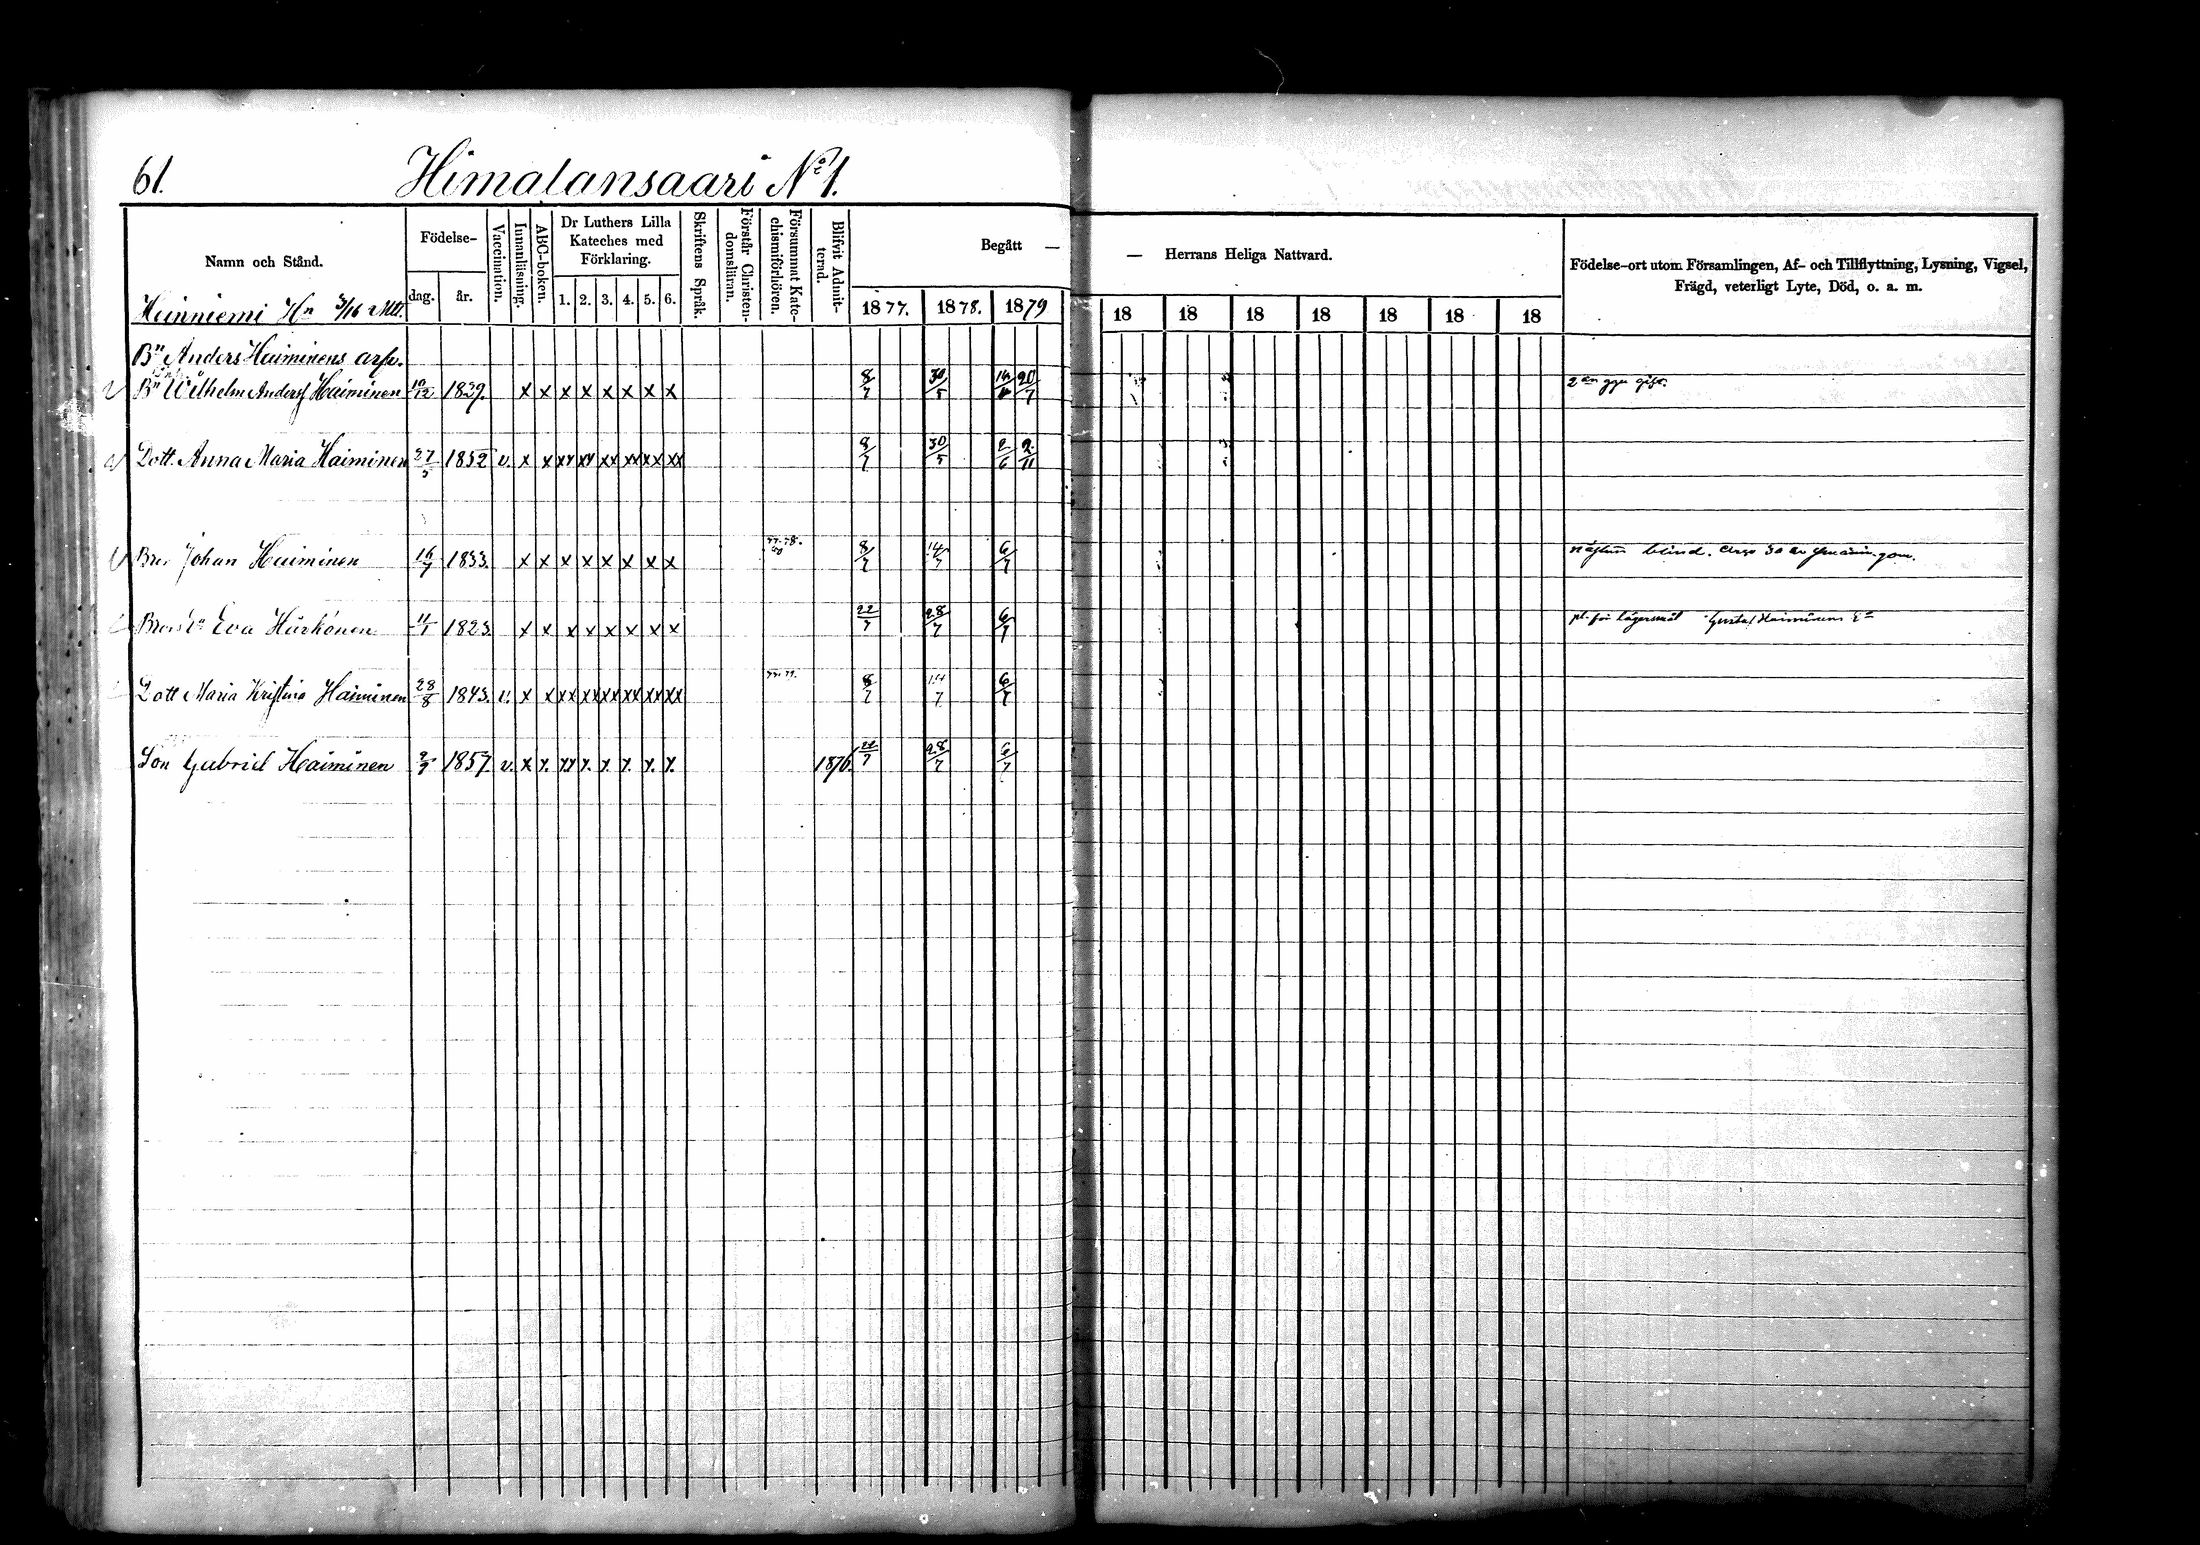 61.
Himalansaari No 1.
Namn och Stånd.
Födelse-
dag.
år.
Vaccination.
Innanläsning.
ABC-boken.
Dr Luthers Lilla
Kateches med
Förklaring.
1. 2. 3. 4. 5. 6.
Skriftens Språk.
Förstår Christen-
domsläran.
Försummat Kate-
chismiförhören.
Blifvit Admit-
terad.
Begått —
— Herrans Heliga Nattvard.
Födelse-ort utom Församlingen, Af- och Tillflyttning, Lysning, Vigsel,
Frägd, veterligt Lyte, Död, o. a. m.
Heinniemi Hn 3/16 Mtl. 1877. 1878. 1879 18 18 18 18 18 18 18
Bn Anders Haiminens arfv.
Bn Wilhelm Anderss Haiminen 10/12 1839. x x x x x x x x 8/7 30/5 20/7 2an ggn gift.
Dott. Anna Maria Haiminen 27/5 1852 v. x x xx xx xx xx xx xx 8/7 30/5 2/6 2/11
Bror Johan Haiminen 16/7 1833. x x x x x x x x 77. 78. 8/7 14/7 6/7 blind.
Eva Härkönen 11/1 1823. x x x x x x x x 22/7 28/7 6/7 pl. för lägersmål Gustaf Haiminens
Dott Maria Kristina Haiminen 28/8 1843. v. x x xx xx xx xx xx xx 77. 79. 8/7 14/7 6/7
Son Gabriel Haiminen 2/9 1857. v. x x. xx x. x. x. x. x. 1876. 22/7 28/7 6/7